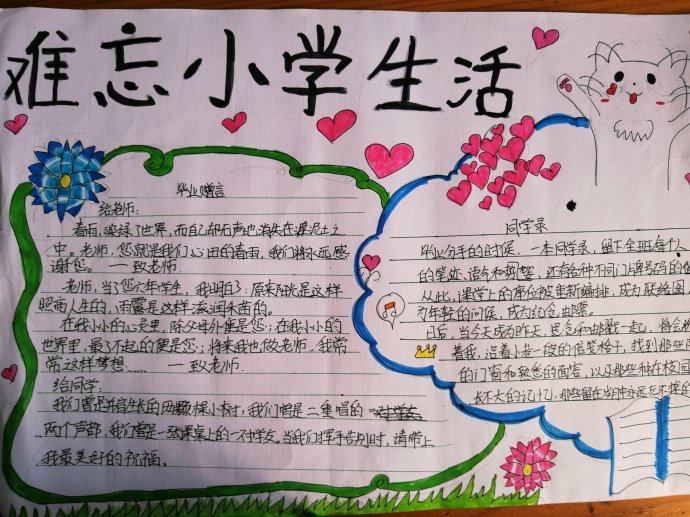 难忘小学生活
毕业赠言
给老师:
春雨,染绿了世界,而自己却无声地消失在泥土之
中。老师,您就是我们心田的春雨,我们将永远感
谢您。 — 致老师.
老师,当了您六年学生,我明白:原来阳光是这样
照亮人生的,雨露是这样滋润禾苗的。
在我小小的心灵里,除父母外便是您;在我小小的
世界里,最了不起的便是您;将来我也做老师,我常
常这样梦想……. — 致老师.
给同学:
我们曾是并肩生长的两颗小树,我们曾是二重唱的
两个声部,我们曾是一张课桌上的一对学友。当我们挥手告别时,请带上
我最美好的祝福。
同学录
毕业分手的时候,一本同学录,留下全班每个人
的笔迹、语句和剪影,还有各种不同门牌号码的
从此,课堂上的座位被重新编排,成为联络图
为年轻的问候,成为纪念邮票。
日后,当今天成为昨天,思念和邮戳一起,将会
着我,沿着小巷一般的信笺格子,找到那些
的门窗和熟悉的面容,以及那些种在校园
长不大的记忆,那些留在当中永远忘不掉的